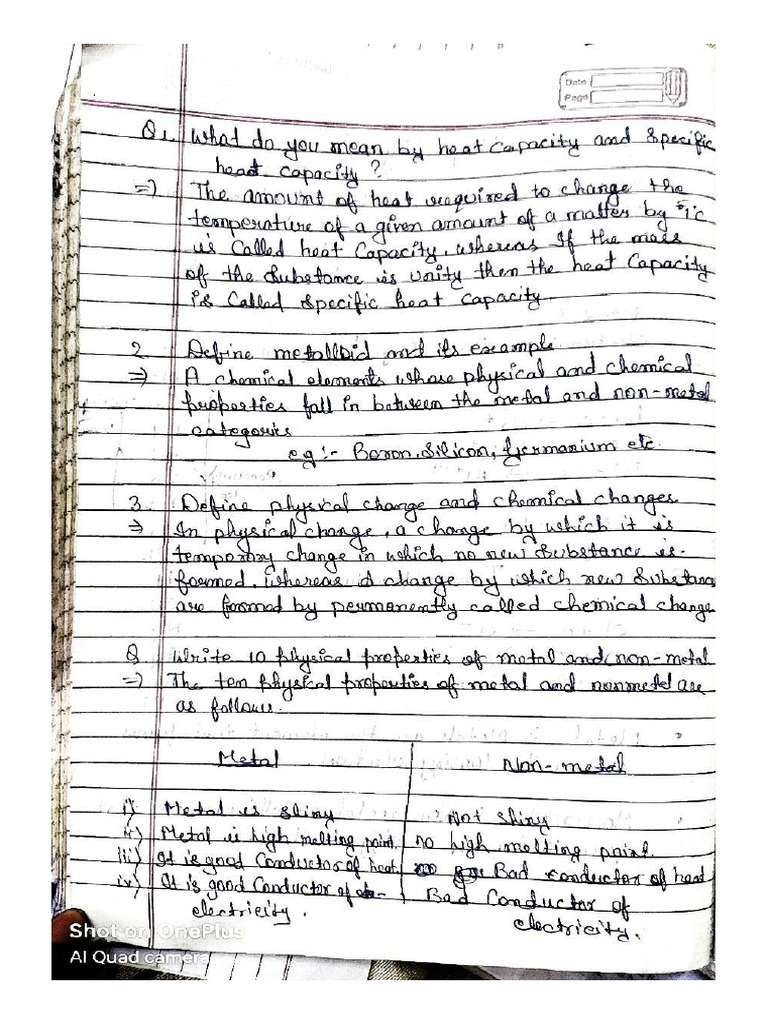 Date
Page
Q1 What do you mean by heat capacity and specific
heat capacity ?
=> The amount of heat required to change the
temperature of a given amount of a matter by 1°c
is called heat capacity, whereas If the mass
of the substance is unity then the heat capacity
is called specific heat capacity.
2 Define metalloid and its example
=> A chemical elements whose physical and chemical
properties fall in between the metal and non-metal
categories
eg:- Boron, Silicon, Germanium etc.
3. Define physical change and chemical changes
=> In physical change, a change by which it is
temporary change in which no new substance is
formed. whereas a change by which new substance
are formed by permanently called chemical change
Q Write 10 physical properties of metal and non-metal
=> The ten physical properties of metal and nonmetal are
as follows.
Metal Non-metal
i) Metal is shiny Not shiny
ii) Metal is high melting point. no high melting point.
iii) It is good conductor of heat. Bad conductor of heat
iv) It is good conductor of Bad Conductor of
electricity. electricity.
Shot on OnePlus
AI Quad camera